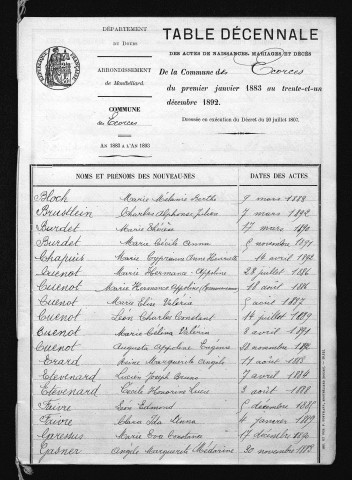 DÉPARTEMENT
du Doubs
ARRONDISSEMENT
de Montbéliard
COMMUNE
des Ecorces
AN 1883 A L'AN 1893
TABLE DÉCENNALE
DES ACTES DE NAISSANCES, MARIAGES ET DÉCÈS
De la Commune des Ecorces
du premier janvier 1883 au trente-et-un
décembre 1892.
Dressée en exécution du Décret du 20 juillet 1807.
NOMS ET PRÉNOMS DES NOUVEAU-NÉS DATES DES ACTES
Bloch Marie Mélanie Berthe 9 mars 1888
Brustlein Charles Alphonse Julien 7 mars 1892
Burdet Marie Thérèse 17 mars 1890
Burdet Marie Cécile Emma novembre 1891
Chapuis Marie Cyprienne Anne Henriette 14 avril 1892
Cuenot Marie Hermance Appoline 28 juillet 1886
Cuenot Marie Hermance Appoline 18 août 1886
Cuenot Marie Elise Valérie août 1887
Cuenot Léon Charles Constant 14 juillet 1889
Cuenot Marie Célina Valérie avril 1891
Cuenot Augusta Appoline Eugénie novembre 1892
Erard Reine Marguerite Angèle 17 août 1888
Etevenard Lucien Joseph Bruno 7 avril 1884
Etevenard Cécile Honorine Lucie août 1888
Faivre Léon Edmond décembre 1885
Faivre Clara Ida Emma 4 janvier 1889
Garessus Marie Eva Constance 17 décembre 1890
Gasner Angèle Marguerite 20 novembre 1883